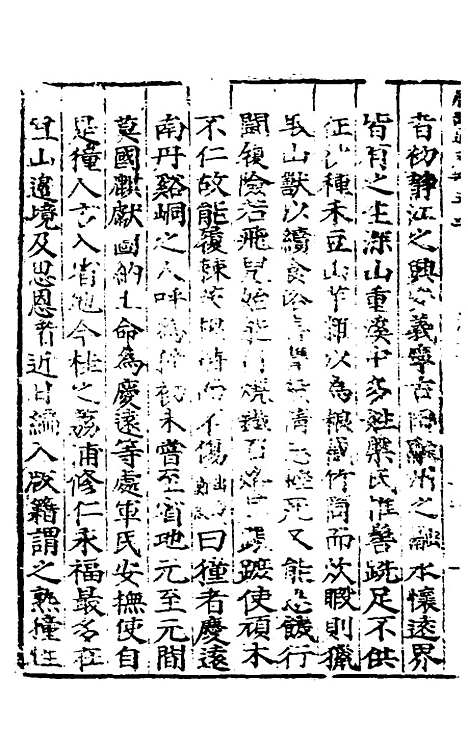 者初靜江之興安義寧古縣融州之融水懷遠界
皆有之生深山重溪中多姓槃氏椎髻跣足不供
征以種禾豆山芋雜以為粮截竹筒而炊暇則獵
山獸以續食死又能忍饑行
鬪履險若飛兒始能行燒鐵石烙其跟蹠使頑木
不仁故能履棘茨根枿而不傷曰獞者慶遠
南丹谿峒之人呼為獞初未嘗至省地元至元間
莫國麒獻圖納土命為慶遠等處軍民安撫使自
是獞人方入省地今桂之荔浦修仁永福最多在
山邊境及思恩者近日編入版籍謂之熟獞性